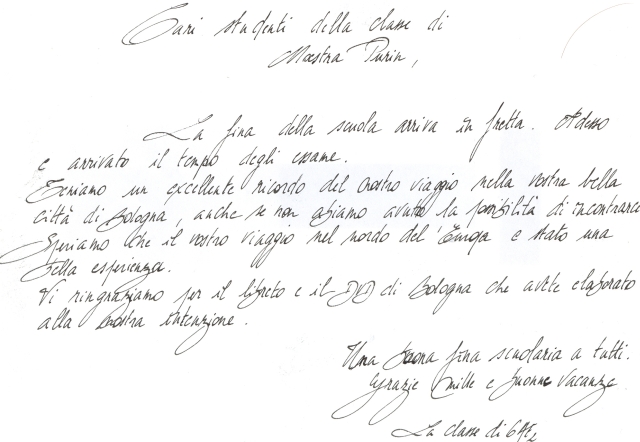 Cari studenti della classe di
Maestra Purin,
La fina della scuola arriva in fretta. Adesso
e arrivato il tempo degli esame.
Teniamo un excellente ricordo del nostro viaggio nella vostra bella
città di Bologna, anche se non abiamo avuto la possibilità di incontrarci
Speriamo che il vostro viaggio nel nordo del'Europa e stato una
bella esperienza.
Vi ringraziamo per il libreto e il DVD di Bologna che avete elaborato
alla nostra intenzione.
Una buona fina scolaria a tutti.
Grazie mille e buonne vacanze
La classe di